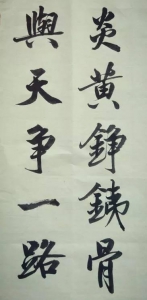 炎黄铮銕骨
與天争一路